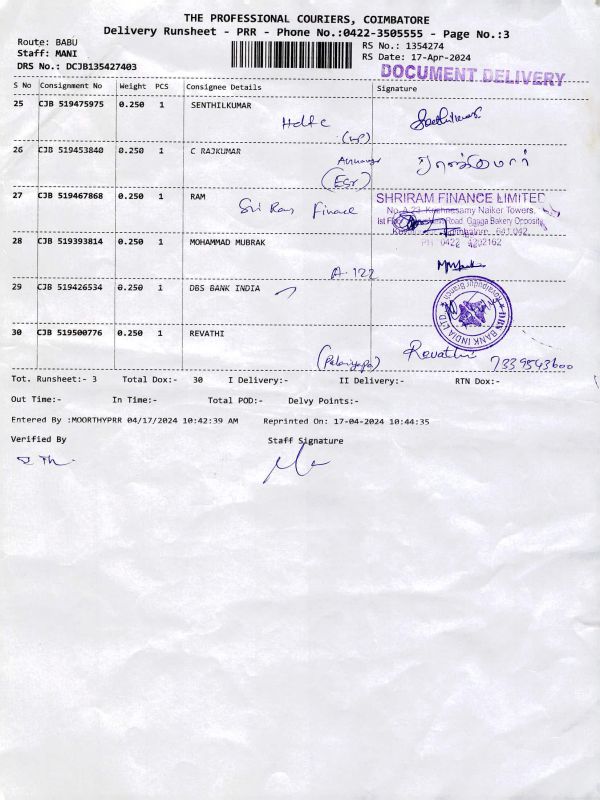 THE PROFESSIONAL COURIERS, COIMBATORE
Delivery Runsheet - PRR - Phone No.:0422-3505555 - Page No.:3
Route: BABU
Staff: MANI
DRS No.: DCJB135427403
RS No.: 1354274
RS Date: 17-Apr-2024
DOCUMENT DELIVERY
S No Consignment No Weight PCS Consignee Details Signature
25 CJB 519475975 0.250 1 SENTHILKUMAR
Hdfc
26 CJB 519453840 0.250 1 C RAJKUMAR
27 CJB 519467868 0.250 1 RAM
Sri Ram Finance
SHRIRAM FINANCE LIMITED
No.A 23, Krishnasamy Naiker Towers,
Ganga Bakery Opposite
PH 0422 4202162
28 CJB 519393814 0.250 1 MOHAMMAD MUBRAK
A-122
29 CJB 519426534 0.250 1 DBS BANK INDIA
DBS BANK INDIA LTD
30 CJB 519500776 0.250 1 REVATHI
Revathi 7339543600
Tot. Runsheet:- 3 Total Dox:- 30 I Delivery:- II Delivery:- RTN Dox:-
Out Time:- In Time:- Total POD:- Delvy Points:-
Entered By :MOORTHYPRR 04/17/2024 10:42:39 AM Reprinted On: 17-04-2024 10:44:35
Verified By Staff Signature